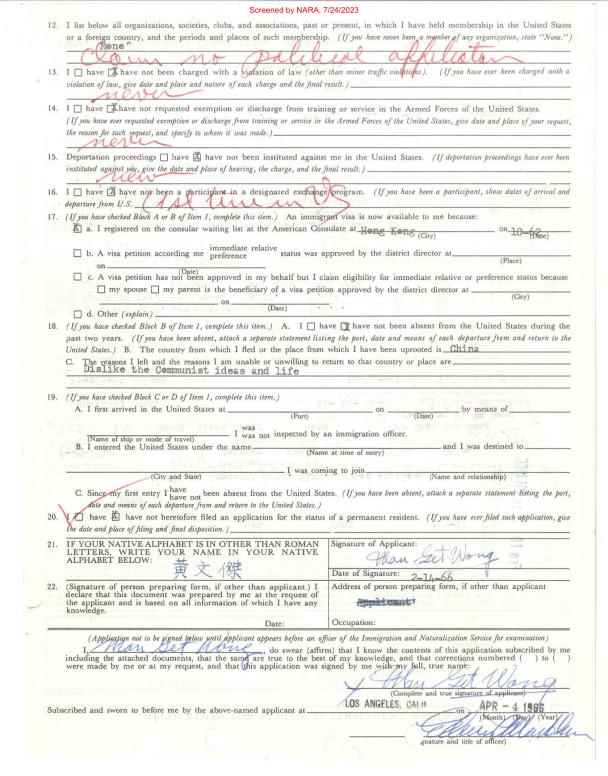 Screened by NARA, 7/24/2023
12. I list below all organizations, societies, clubs, and associations, past or present, in which I have held membership in the United States
or a foreign country, and the periods and places of such membership. (If you have never been a member of any organization, state "None.")
None
Claim no political
13. I ☐ have ☒ have not been charged with a violation of law (other than minor traffic violations). (If you have ever been charged with a
violation of law, give date and place and nature of each charge and the final result.)
never
14. I ☐ have ☒ have not requested exemption or discharge from training or service in the Armed Forces of the United States.
(If you have ever requested exemption or discharge from training or service in the Armed Forces of the United States, give date and place of your request,
the reason for such request, and specify to whom it was made.)
never
15. Deportation proceedings ☐ have ☒ have not been instituted against me in the United States. (If deportation proceedings have ever been
instituted against you, give the date and place of hearing, the charge, and the final result.)
16. I ☐ have ☒ have not been a participant in a designated exchange program. (If you have been a participant, show dates of arrival and
departure from U.S.
(1st time in US
17. (If you have checked Block A or B of Item 1, complete this item.) An immigrant visa is now available to me because:
☒ a. I registered on the consular waiting list at the American Consulate at Hong Kong on 10-62
(City) (Date)
☐ b. A visa petition according me immediate relative
preference status was approved by the district director at
(Place)
on
(Date)
☐ c. A visa petition has not been approved in my behalf but I claim eligibility for immediate relative or preference status because
☐ my spouse ☐ my parent is the beneficiary of a visa petition approved by the district director at
(City)
on
(Date)
☐ d. Other (explain)
18. (If you have checked Block B of Item 1, complete this item.) A. I ☐ have ☒ have not been absent from the United States during the
past two years. (If you have been absent, attach a separate statement listing the port, date and means of each departure from and return to the
United States.) B. The country from which I fled or the place from which I have been uprooted is China
C. The reasons I left and the reasons I am unable or unwilling to return to that country or place are
Dislike the Communist ideas and life
19. (If you have checked Block C or D of Item 1, complete this item.)
A. I first arrived in the United States at on by means of
(Port) (Date)
I was
was not inspected by an immigration officer.
(Name of ship or mode of travel)
B. I entered the United States under the name and I was destined to
(Name at time of entry)
I was coming to join
(City and State) (Name and relationship)
C. Since my first entry I have
have not been absent from the United States. (If you have been absent, attach a separate statement listing the port,
date and means of each departure from and return to the United States.)
20. I ☐ have ☒ have not heretofore filed an application for the status of a permanent resident. (If you have ever filed such application, give
the date and place of filing and final disposition.)
21. IF YOUR NATIVE ALPHABET IS IN OTHER THAN ROMAN
LETTERS, WRITE YOUR NAME IN YOUR NATIVE
ALPHABET BELOW:
黃文傑
Signature of Applicant:
Man Get Wong
Date of Signature: 2-14-66
22. (Signature of person preparing form, if other than applicant.) I
declare that this document was prepared by me at the request of
the applicant and is based on all information of which I have any
knowledge.
Date:
Address of person preparing form, if other than applicant
Applicant
Occupation:
(Application not to be signed below until applicant appears before an officer of the Immigration and Naturalization Service for examination)
I, Man Get Wong, do swear (affirm) that I know the contents of this application subscribed by me
including the attached documents, that the same are true to the best of my knowledge, and that corrections numbered ( ) to ( )
were made by me or at my request, and that this application was signed by me with my full, true name:
Man Get Wong
(Complete and true signature of applicant)
Subscribed and sworn to before me by the above-named applicant at LOS ANGELES, CALIF. on APR - 4 1966
(Month) (Day) (Year)
(Signature and title of officer)